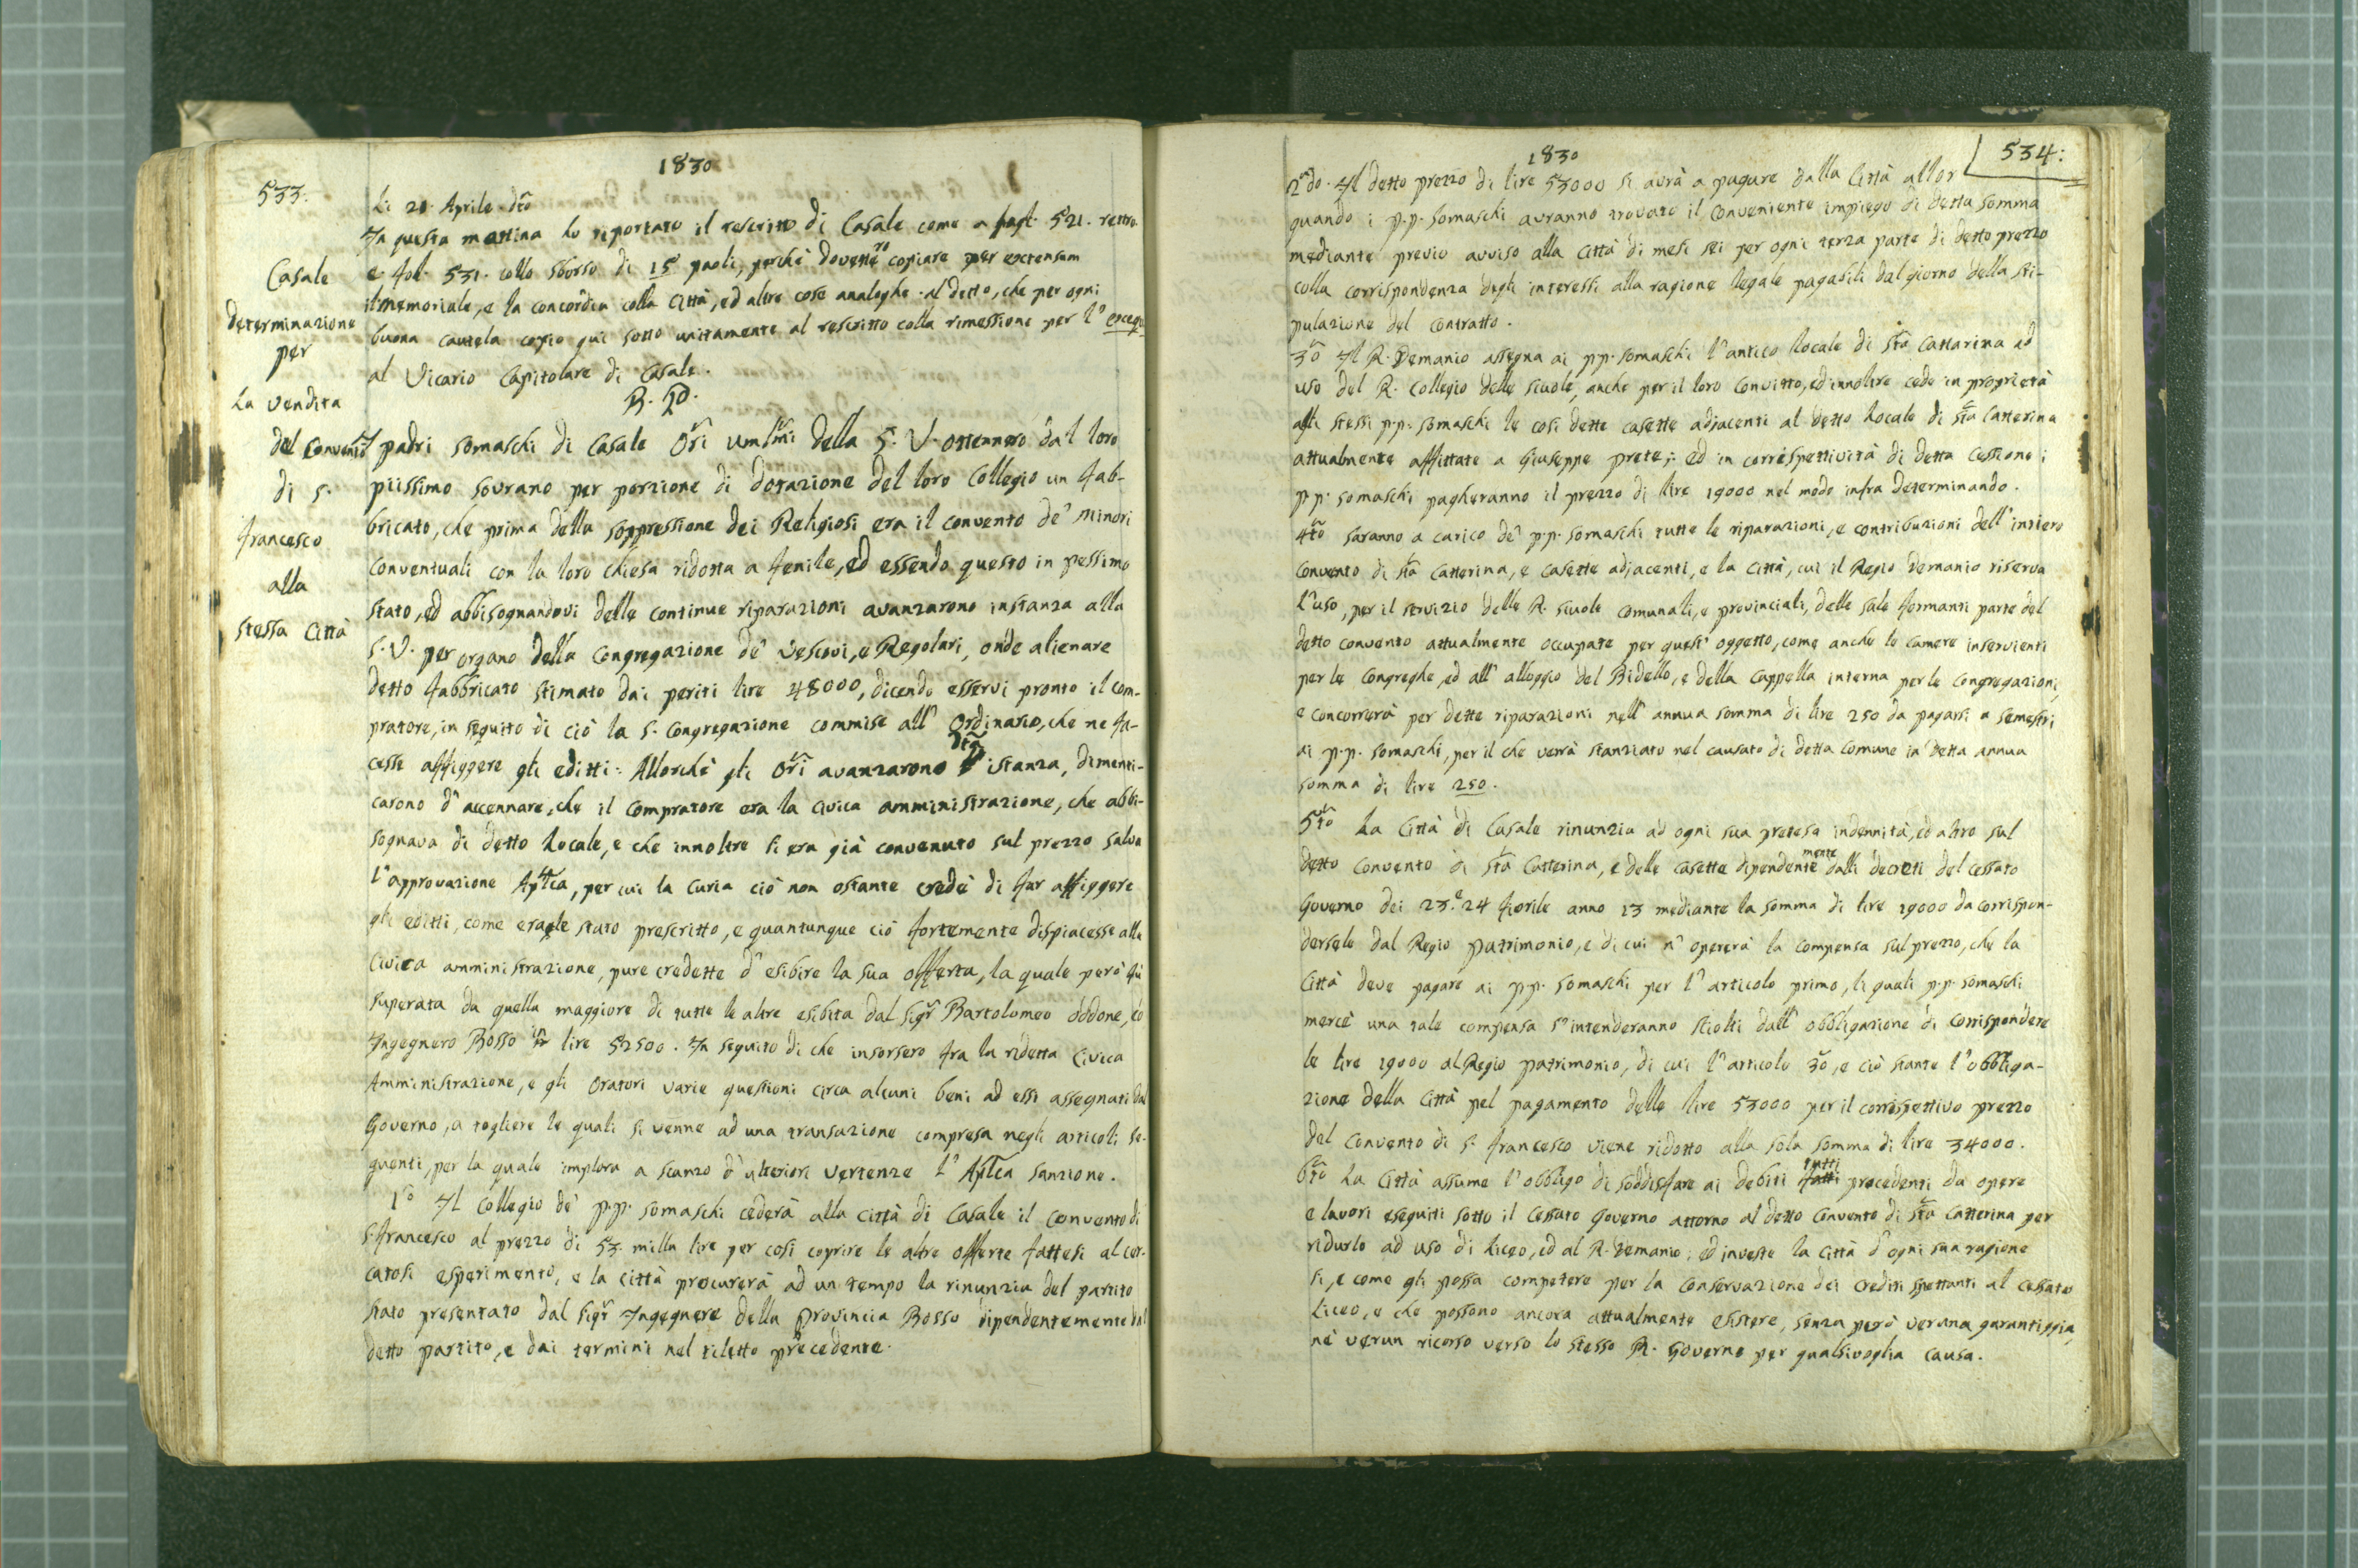 1830
533.
Casale
Determinazione
per
La vendita
del Convento
di S.
francesco
alla
stessa Città
Li 20. Aprile dto
In questa mattina ho riportato il rescritto di Casale come a 521. retro
e fol. 531. collo sborso di 15 paoli, perchè dovette copiare per extensum
il memoriale, e la concordia colla Città, ed altre cose analoghe al detto, che per ogni
buona cautela copio qui sotto unitamente al rescritto colla rimessione per l'
al Vicario Capitolare di Casale.
B. P.
I padri Somaschi di Casale Ori umlmi della S. V. ottennero dal loro
piissimo sovrano per porzione di dotazione del loro Collegio un fab-
bricato, che prima della soppressione dei Religiosi era il convento de' Minori
Conventuali con la loro chiesa ridotta a fenile, ed essendo questo in pessimo
stato, ed abbisognandovi delle continue riparazioni avanzarono instanza alla
S. V. per organo della Congregazione de' Vescovi, e Regolari, onde alienare
detto fabbricato stimato dai periti lire 48000, dicendo esservi pronto il com-
pratore, in seguito di ciò la S. Congregazione commise all' Ordinario, che ne fa-
cesse affiggere gli editti: Allorchè gli Ori avanzarono dta istanza, dimenti-
carono d' accennare, che il Compratore era la Civica amministrazione, che abbi-
sognava di detto locale, e che innoltre si era già convenuto sul prezzo salva
l'approvazione Aplca, per cui la Curia ciò non ostante credè di far affiggere
gli editti, come eragle stato prescritto, e quantunque ciò fortemente dispiacesse alla
Civica amministrazione, pure credette d' esibire la sua offerta, la quale però fù
superata da quella maggiore di tutte le altre esibita dal Sigr Bartolomeo Oddone, ed
Ingegnero Bosso in lire 52500. In seguito di che insorsero fra la ridetta Civica
Amministrazione, e gli Oratori varie questioni circa alcuni beni ad essi assegnati dal
Governo, a togliere le quali si venne ad una transazione compresa negli articoli se-
guenti, per la quale implora a scanzo d' ulteriori vertenze l' Aplca sanzione.
1o Il Collegio de' p.p. Somaschi cederà alla Città di Casale il Convento di
S. francesco al prezzo di 53. milla lire per così coprire le altre offerte fattesi al cer-
catosi esperimento, e la città procurerà ad un tempo la rinunzia del partito
stato presentato dal Sigr Ingegnere della Provincia Bosso dipendentemente dal
detto partito, e dai termini nel tiletto precedente.
1830
534:
2do. Il detto prezzo di lire 53000 si avrà a pagare dalla Città allor
quando i p.p. Somaschi avranno trovato il conveniente impiego di detta somma
mediante previo avviso alla Città di mesi sei per ogni terza parte di detto prezzo
colla corrispondenza degli interessi alla ragione legale pagabili dal giorno della sti-
pulazione del contratto.
3o Il R. Demanio assegna ai p.p. Somaschi l'antico locale di Sta Cattarina ad
uso del R. Collegio delle scuole, anche per il loro Convitto, ed innoltre cede in proprietà
agli stessi p.p. Somaschi le così dette casette adjacenti al detto Locale di Sta Catterina
attualmente affittate a Giuseppe Prete; ed in correspettività di detta Cessione i
p.p. Somaschi pagheranno il prezzo di lire 19000 nel modo infra determinando.
4to Saranno a carico de' p.p. Somaschi tutte le riparazioni, e contribuzioni dell' intiero
Convento di Sta Catterina, e casette adjacenti, e la Città, cui il Regio Demanio riserva
l'uso, per il servizio delle R. scuole Comunali, e provinciali, delle sale formanti parte del
detto convento attualmente occupate per quest' oggetto, come anche le camere inservienti
per le congreghe, ed all' alloggio del Bidello, e della Cappella interna per le Congregazioni,
e concorrerà per dette riparazioni nell' annua somma di lire 250 da pagarsi a semestri
ai p.p. Somaschi, per il che verrà stanziato nel causato di detta Comune la detta annua
somma di lire 250.
5to La Città di Casale rinunzia ad ogni sua pretesa indennità, ed altro sul
detto Convento di Sta Catterina, e delle casette dipendentemente dalli decreti del cessato
Governo dei 23. e 24 fiorile anno 13 mediante la somma di lire 19000 da corrispon-
dersele dal Regio patrimonio, e di cui n' opererà la compensa sul prezzo, che la
Città deve pagare ai p.p. Somaschi per l' articolo primo, li quali p.p. Somaschi
mercè una tale compensa s' intenderanno sciolti dall' obbligazione di corrispondere
le lire 19000 al Regio patrimonio, di cui l' articolo 3o, e ciò stante l' obbliga-
zione della Città pel pagamento delle lire 53000 per il correspettivo prezzo
del Convento di S. francesco viene ridotto alla sola somma di lire 34000.
6to La Città assume l'obbligo di soddisfare ai debiti tutti procedenti da opere
e lavori eseguiti sotto il cessato Governo attorno al detto Convento di Sta Catterina per
ridurlo ad uso di Liceo, ed al R. Demanio; ed investe la Città d' ogni sua ragione
si, e come gli possa competere per la conservazione dei crediti spettanti al cessato
Liceo, e che possono ancora attualmente esistere, senza però veruna garantiggia,
nè verun ricorso verso lo stesso R. Governo per qualsivoglia causa.